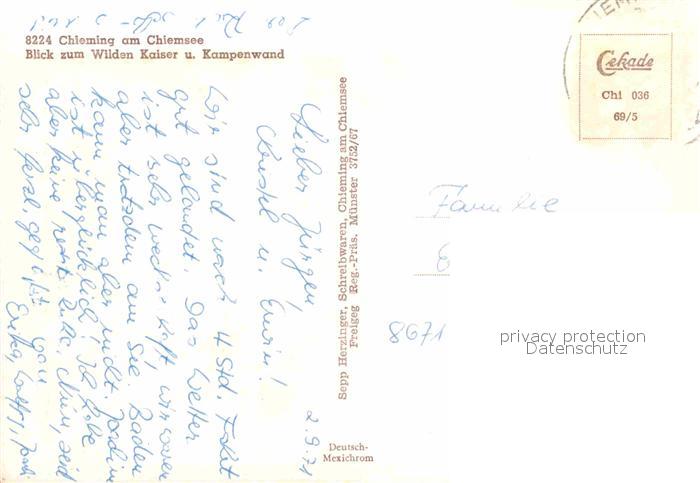 8224 Chieming am Chiemsee
Blick zum Wilden Kaiser u. Kampenwand
Cekade
Chi 036
69/5
2.9.71
Lieber Jürgen,
Christl u. Erwin!
Wir sind nach 4 Std. Fahrt
gut gelandet. Das Wetter
ist sehr wechselhaft wir waren
aber trotzdem am See. Baden
kann man aber nicht.
ist überglücklich! Ich habe
aber keine rechte Nun, seid
sehr herzl. gegrüßt von
Erika,
Sepp Herzinger, Schreibwaren, Chieming am Chiemsee
Freigeg Reg.-Präs. Münster 3752/67
Familie
E
8671
privacy protection
Datenschutz
Deutsch-
Mexichrom